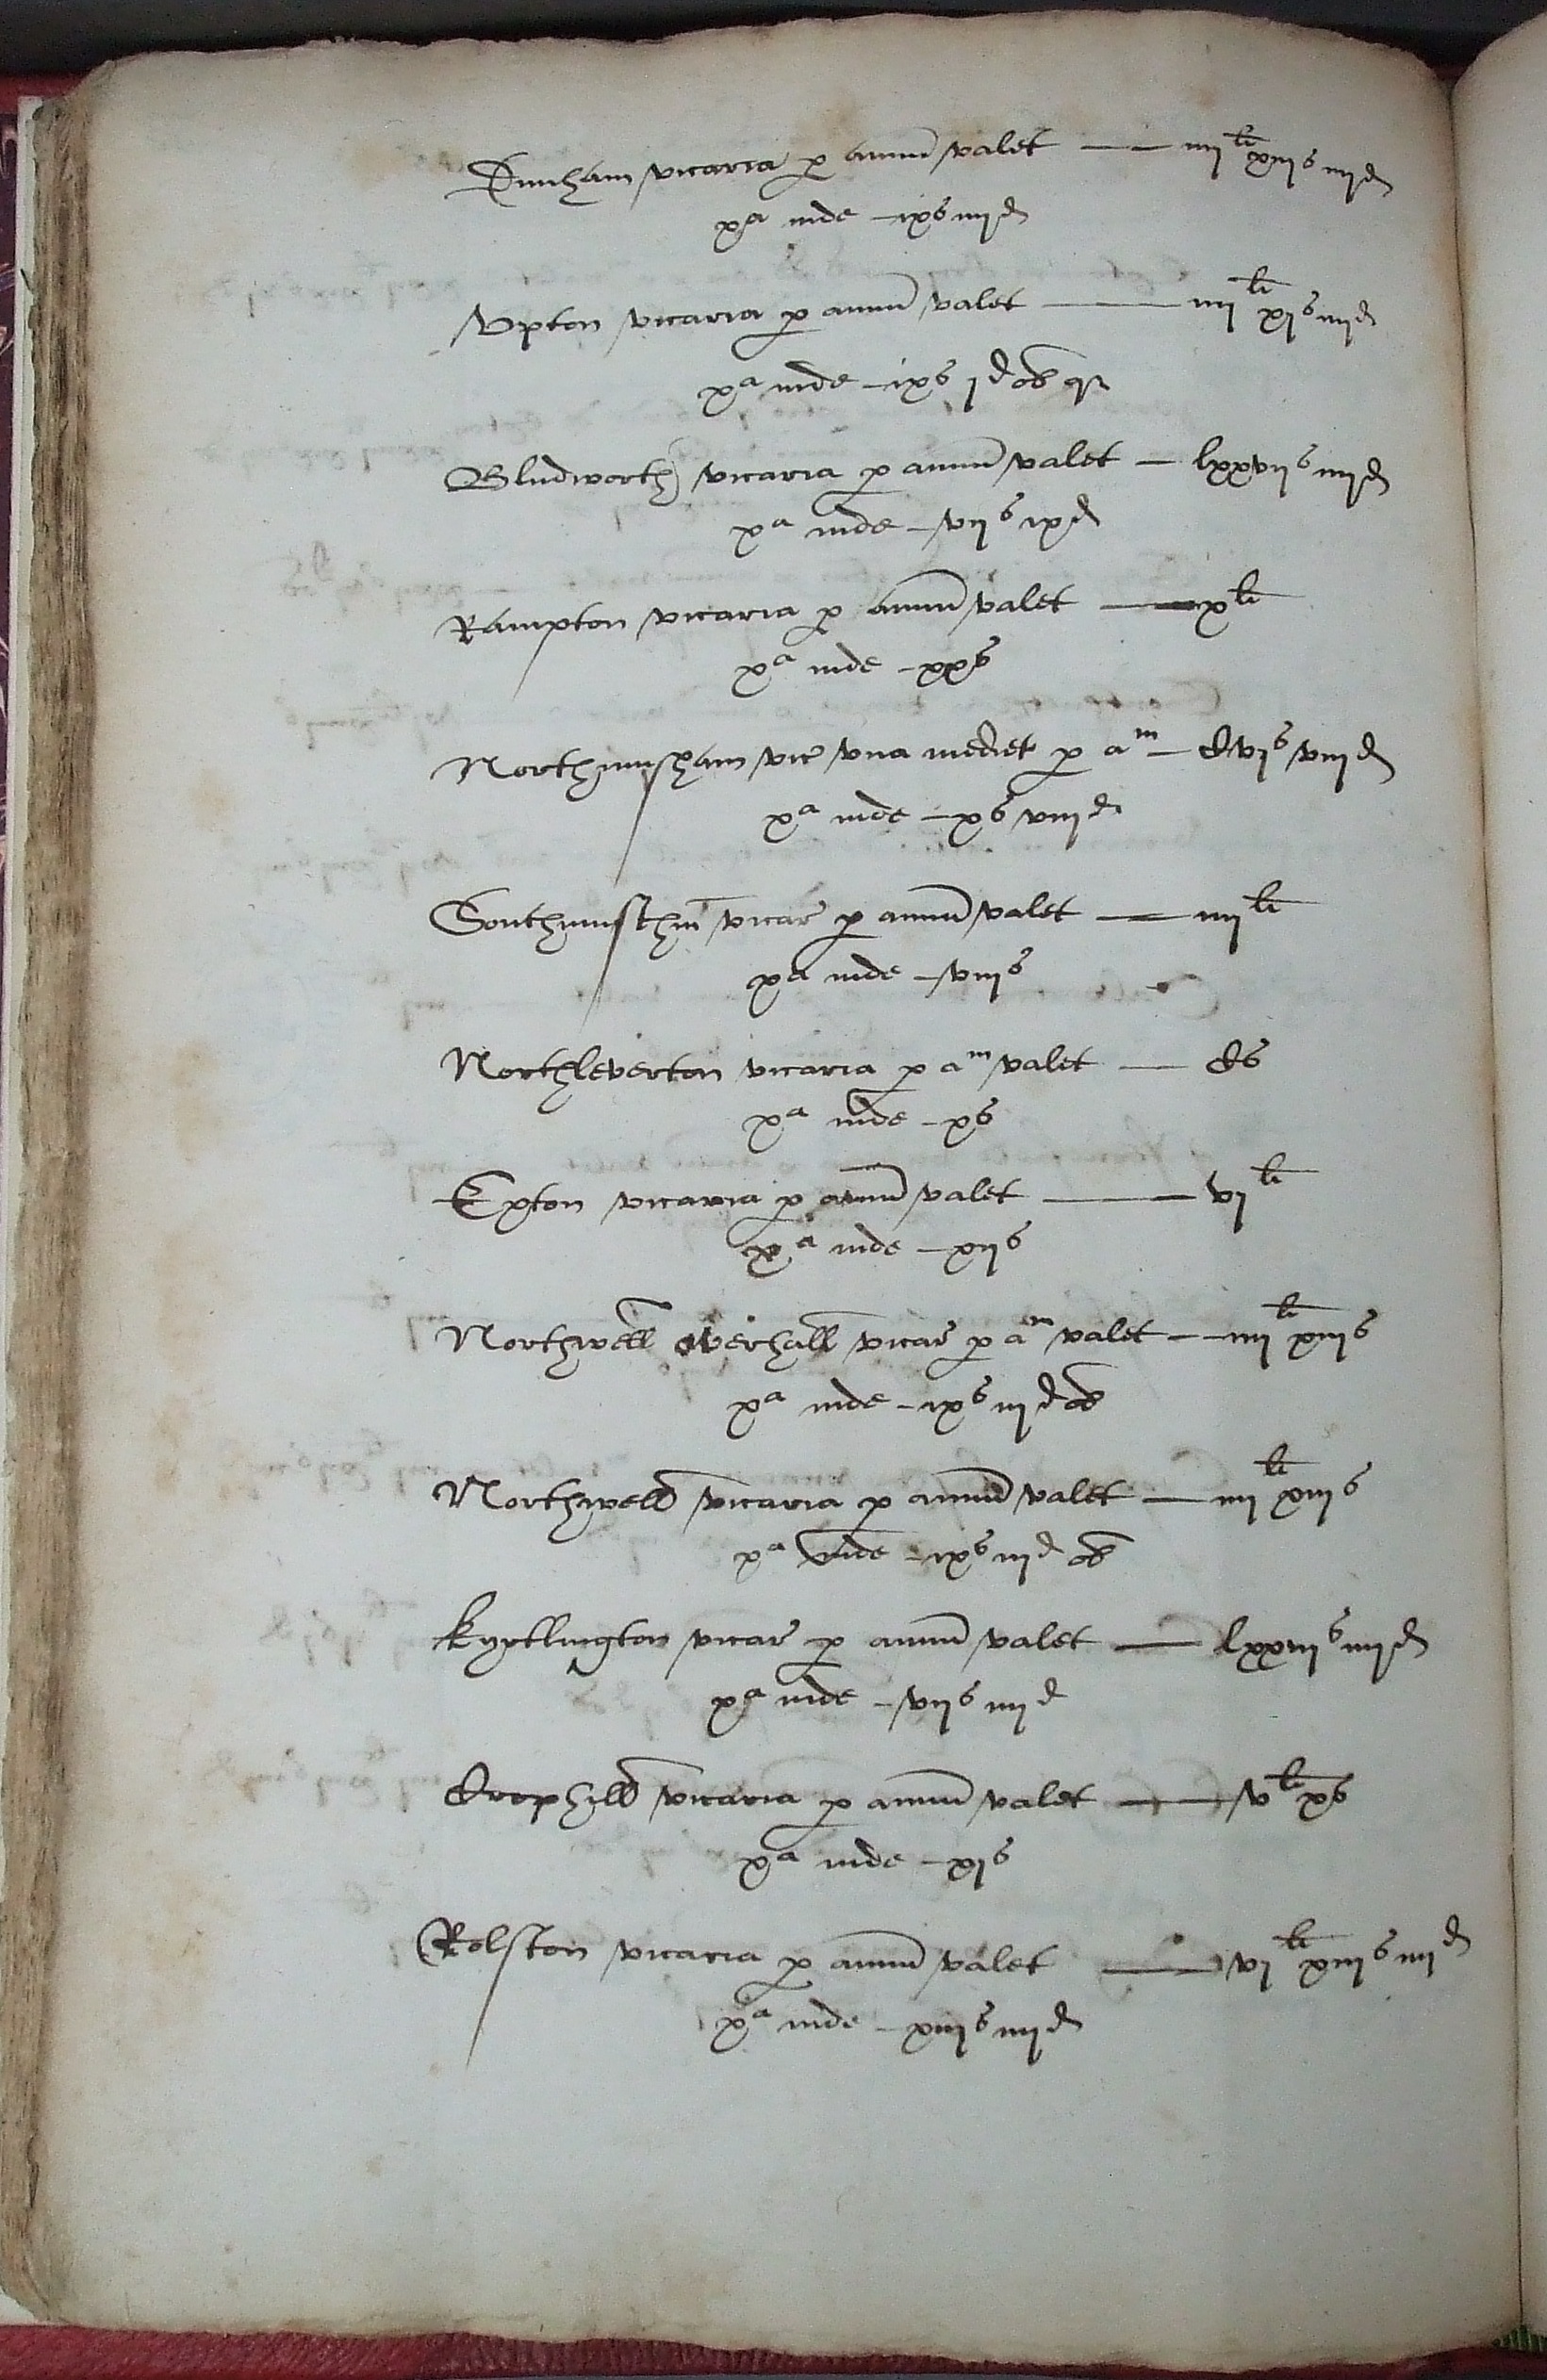 Dunham vicaria p annu valet — iiijli xiijs iiijd
xa inde – ixs iiijd
Vpton vicaria p annu valet — iiijli xjs iiijd
xa inde – ixs jd ob qr
Bludworth vicaria p annu valet — lxxvijs iiijd
xa inde – vijs ixd
Rampton vicaria p annu valet — xli
xa inde – xxs
Northmuskham vic vna mediet p am – cvjs viijd
xa inde – xs viijd
Southmuskhm vicar p annu valet — iiijli
xa inde – viijs
Northleverton vicaria p am valet — cs
xa inde – xs
Exton vicaria p annu valet — vjli
xa inde – xijs
Northwell overhall vicar p am valet — iiijli xiijs
xa inde – ixs iijd ob
Northwell vicaria p annu valet — iiijli xiijs
xa inde – ixs iijd ob
kyrtlington vicar p annu valet — lxxiijs iiijd
xa inde – vijs iiijd
Crophill vicaria p annu valet — vli xs
xa inde – xjs
Rolston vicaria p annu valet — vjli xiijs iiijd
xa inde – xiijs iiijd